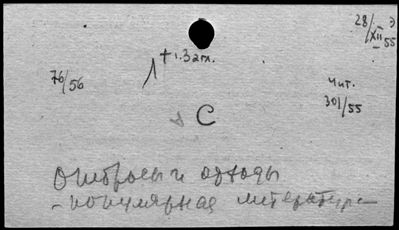 28/XII 55
Э
+1.3агл.
76/56
Чит.
301/55
С
Отбросы и отходы
- популярная литература